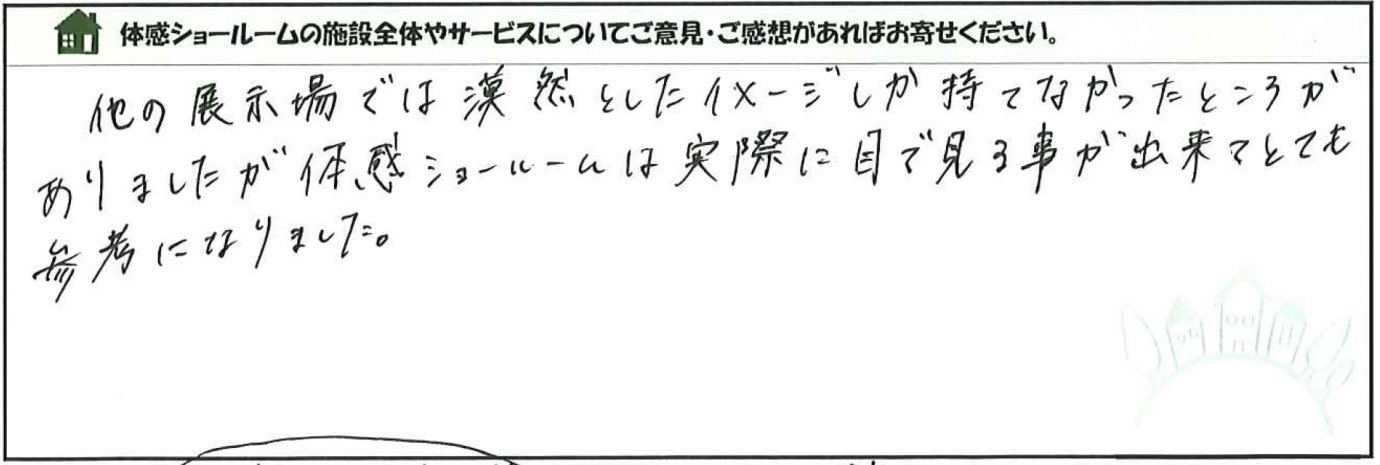 体感ショールームの施設全体やサービスについてご意見・ご感想があればお寄せください。
他の展示場では漠然としたイメージしか持てなかったところが
ありましたが体感ショールームは実際に目で見る事が出来てとても
参考になりました。